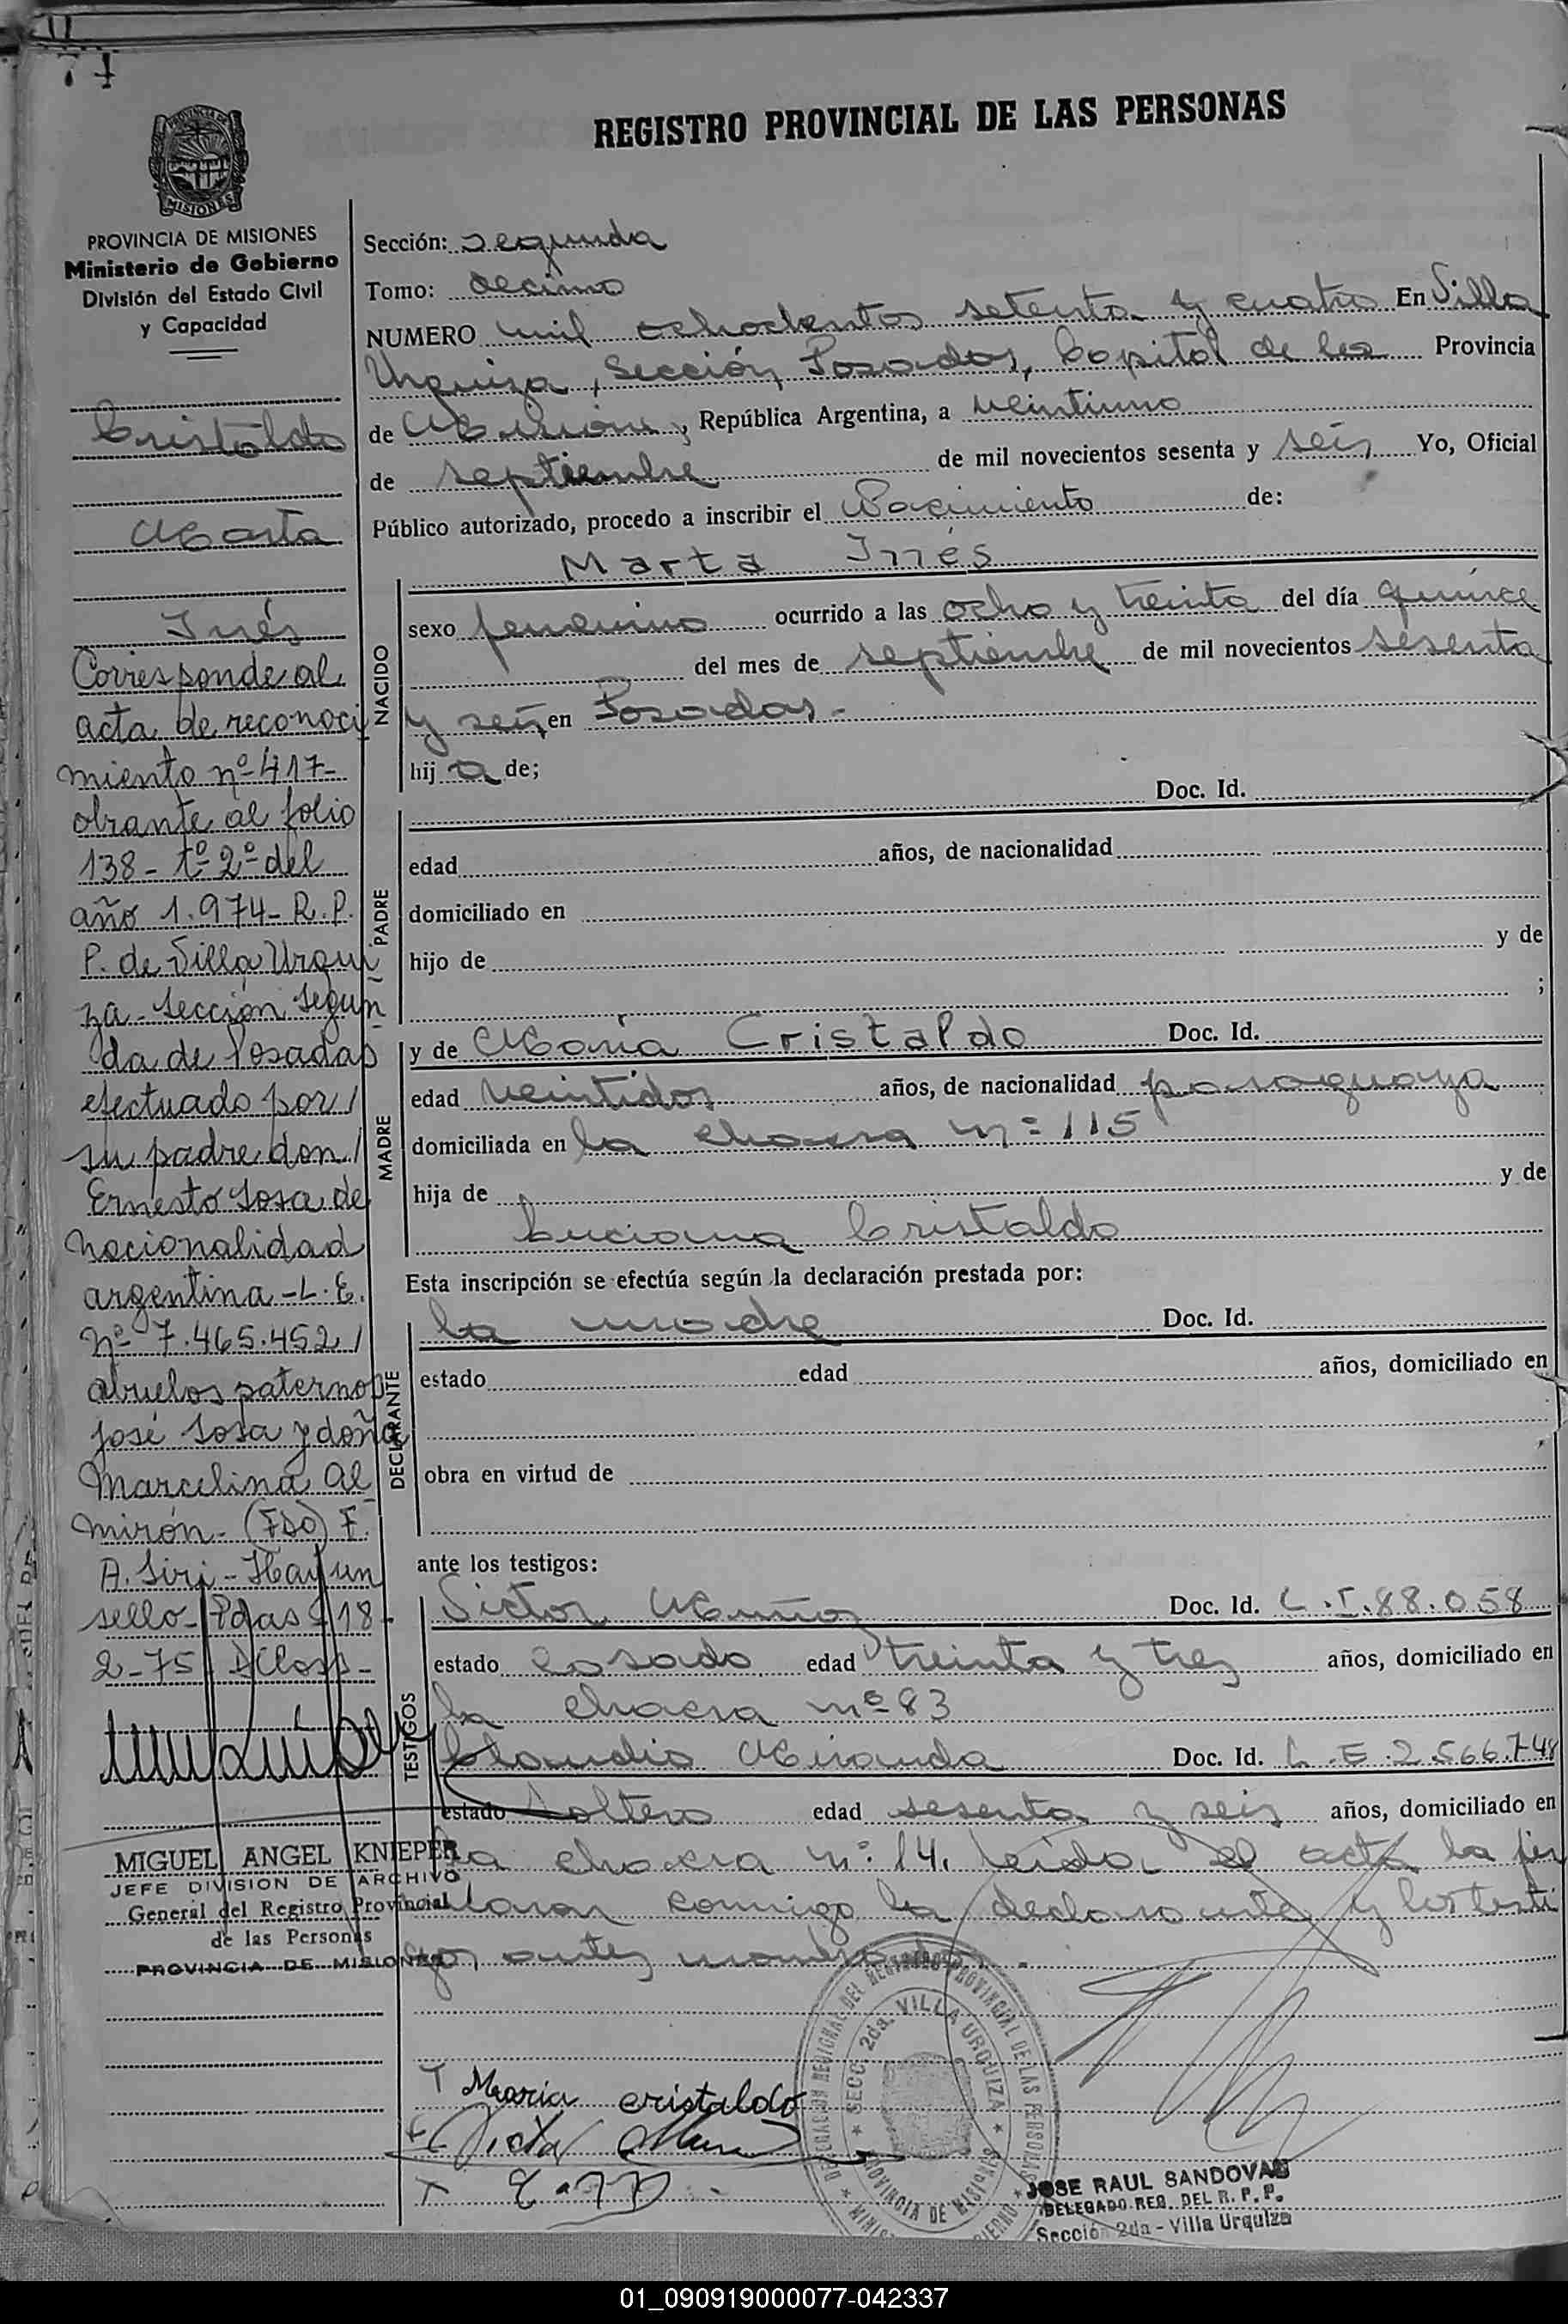 77
REGISTRO PROVINCIAL DE LAS PERSONAS
MISIONES
PROVINCIA DE MISIONES
Ministerio de Gobierno
División del Estado Civil
y Capacidad
Cristaldo
Marta
Inés
Corresponde al
acta de reconoci
miento nº 417-
obrante al folio
138- tº 2º del
año 1.974- R.P.
P. de Villa Urqui
za- Sección Segun
da de Posadas
efectuado por/
su padre don/
Ernesto Sosa de
nacionalidad
argentina-L.E.
Nº 7.465.452/
abuelos paternos
José Sosa y doña
Marcelina Al
mirón- (FDO) F.
A. Siri- Hay un
sello- Pdas 18-
2-75
MIGUEL ANGEL KNIEPER
JEFE DIVISION DE ARCHIVO
General del Registro Provincial
de las Personas
PROVINCIA DE MISIONES
Sección: segunda
Tomo: decimo
NUMERO mil ochocientos setenta y cuatro En Villa
Urquiza, Sección Posadas, Capital de la Provincia
de Misiones, República Argentina, a veintiuno
de septiembre de mil novecientos sesenta y seis Yo, Oficial
Público autorizado, procedo a inscribir el Nacimiento de:
NACIDO
Marta Inés
sexo femenino ocurrido a las ocho y treinta del día quince
del mes de septiembre de mil novecientos sesenta
y seis en Posadas.-
hija de;
PADRE
Doc. Id.
edad años, de nacionalidad
domiciliado en
hijo de y de
;
MADRE
y de María Cristaldo Doc. Id.
edad veintidos años, de nacionalidad paraguaya
domiciliada en la chacra nº 115
hija de y de
Luciana Cristaldo
Esta inscripción se efectúa según la declaración prestada por:
DECLARANTE
la madre Doc. Id.
estado edad años, domiciliado en
obra en virtud de
ante los testigos:
TESTIGOS
Victor Muñoz Doc. Id. C.I. 88.058
estado casado edad treinta y tres años, domiciliado en
la chacra nº 83
Claudio Miranda Doc. Id. L.E. 2.566.748
estado soltero edad sesenta y seis años, domiciliado en
la chacra nº 14. Leida el acta la fir
maron conmigo la declarante y los testi
gos antes
Maria cristaldo
Victor
SECC. 2da. VILLA URQUIZA
PROVINCIA DE MISIONES
DELEGACION REGIONAL DEL REGISTRO PROVINCIAL DE LAS PERSONAS
JOSE RAUL SANDOVAL
DELEGADO REG. DEL R. P. P.
Sección 2da - Villa Urquiza
01_090919000077-042337